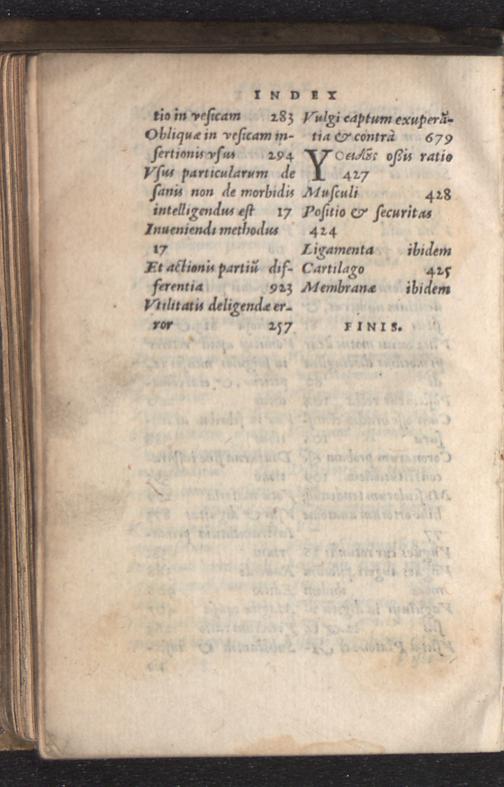 INDEX
tio in vesicam 283
Obliquæ in vesicam in-
sertionis vsus 294
Vsus particularum de
sanis non de morbidis
intelligendus est 17
Inueniendi methodus
17
Et actionis partiū dif-
ferentia 923
Vtilitatis deligendæ er-
ror 257
Vulgi captum exuperā-
tia & contrà 679
Υοειδὲς oßis ratio
427
Musculi 428
Positio & securitas
424
Ligamenta ibidem
Cartilago 425
Membranæ ibidem
FINIS.